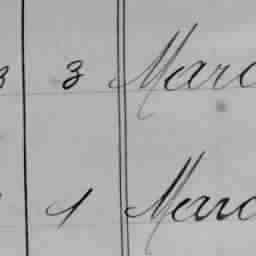 3 3 Marc
1 Marc